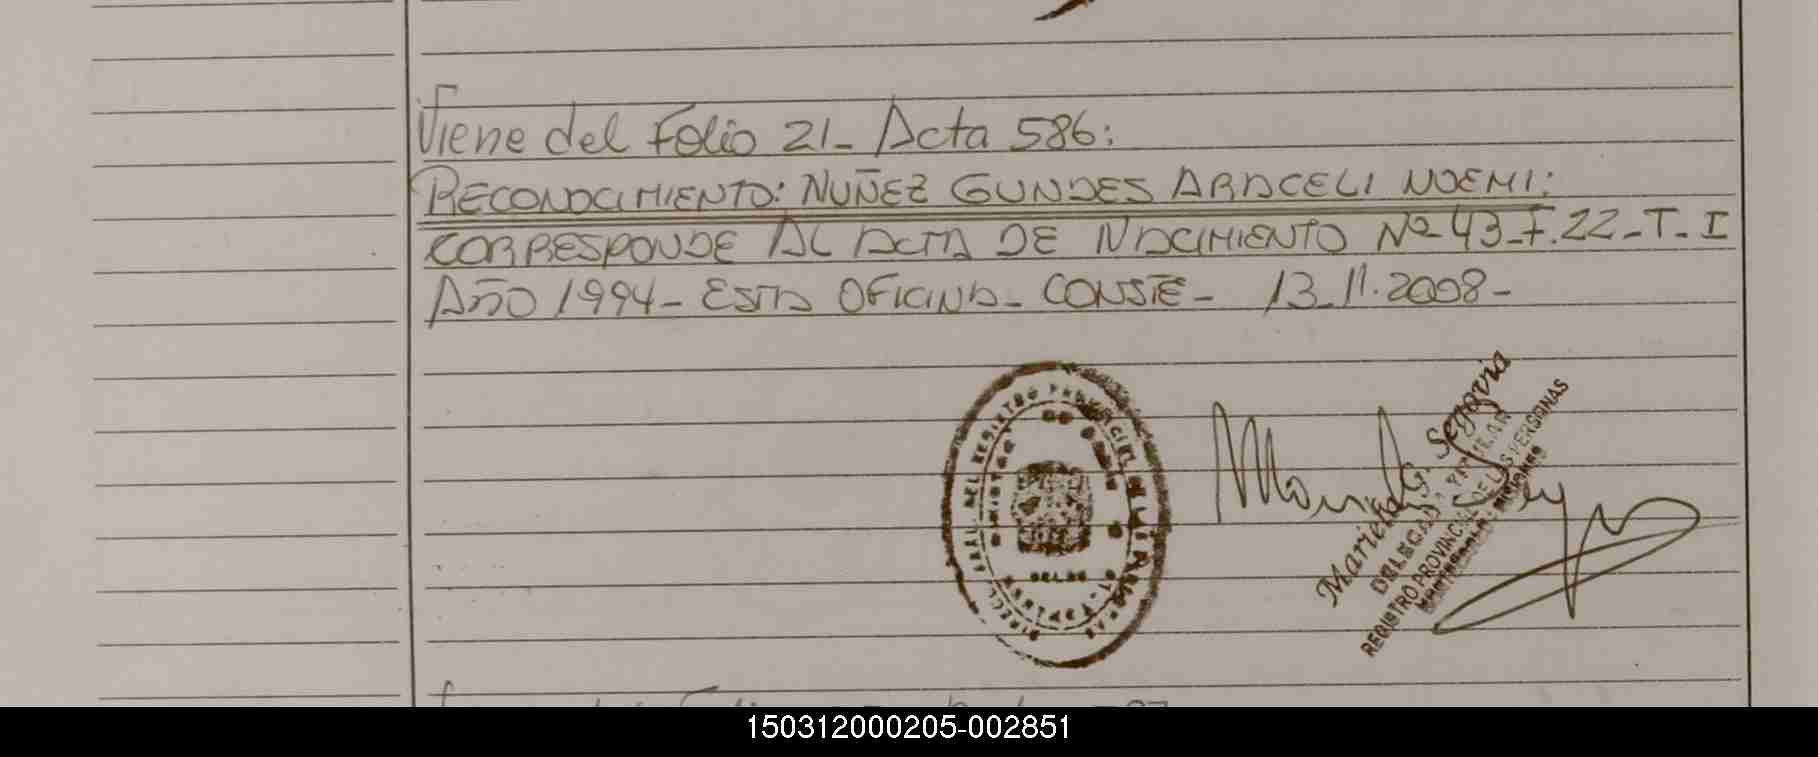 Viene del Folio 21_ Acta 586:
RECONOCIMIENTO: NUÑEZ GUNDES ARACELI NOEMI:
CORRESPONDE AL ACTA DE NACIMIENTO Nº 43_F.22_T_I
AÑO 1994_ ESTA OFICINA_ CONSTE_ 13_11.2008_
Mariela G. Segovia
REGISTRO PROVINCIAL DE LAS PERSONAS
150312000205-002851